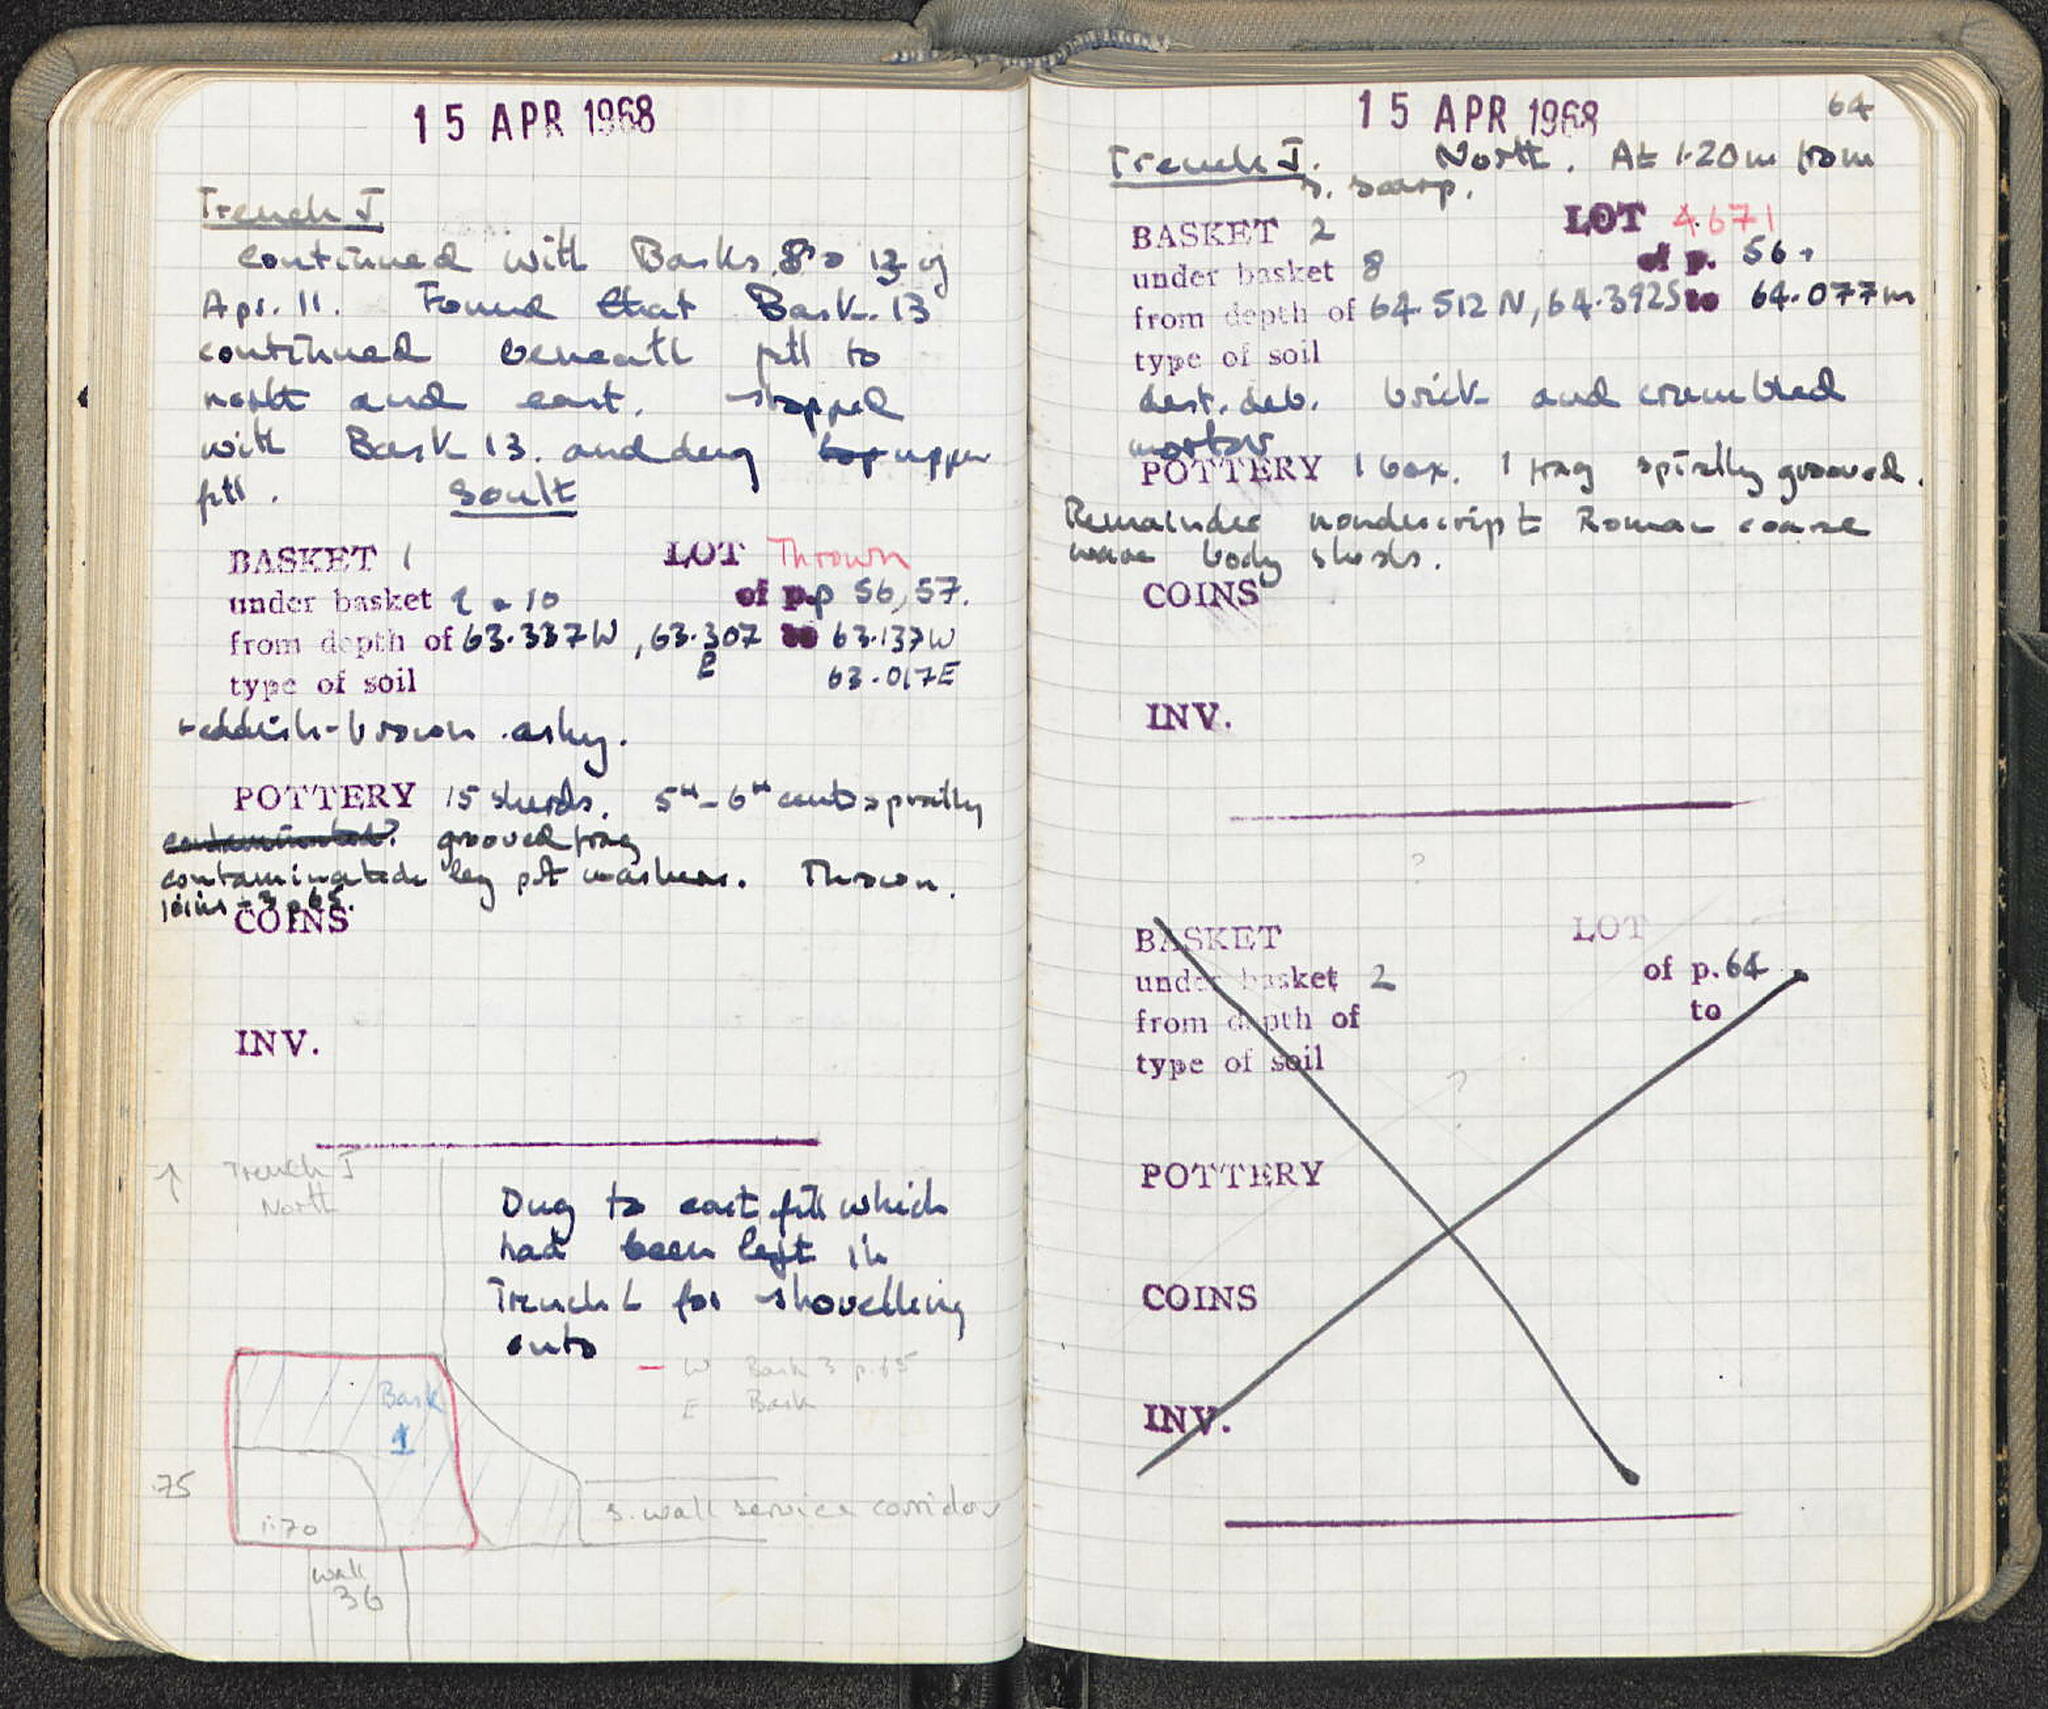 15 APR 1968
Trench J
continued with Basks. 8 13 of
Apr. 11. Found that Bask. 13
continued beneath fill to
north and east. stopped
with Bask 13. and dug top upper
fill. South
BASKET 1 LOT Thrown
under basket 10 of p.p 56, 57.
from depth of 63.337W, 63.307 to 63.137W
E 63.017E
type of soil
reddish-brown ashy.
POTTERY 15 sherds. 5th-6th cent spirally
contaminated. grooved frag
contaminated by pot washers. Thrown.
joins 3 p 65.
COINS
INV.
↑ Trench J
North
Dug to east fill which
had been left in
Trench L for shovelling
onto
W Bask 3 p.65
E Bask
Bask
1
.75
1.70
S. wall service corridor
wall
36
15 APR 1968
64
Trench J. North. At 1.20m from
S. scarp.
BASKET 2 LOT 4671
under basket 8 of p. 56.
from depth of 64.512 N, 64.392S to 64.077m
type of soil
dest. deb. brick and crumbled
mortar
POTTERY 1 box. 1 frag spirally grooved.
Remainder nondescript Roman coarse
ware body sherds.
COINS
INV.
?
BASKET LOT
under basket 2 of p. 64
from depth of to
type of soil
?
POTTERY
COINS
INV.